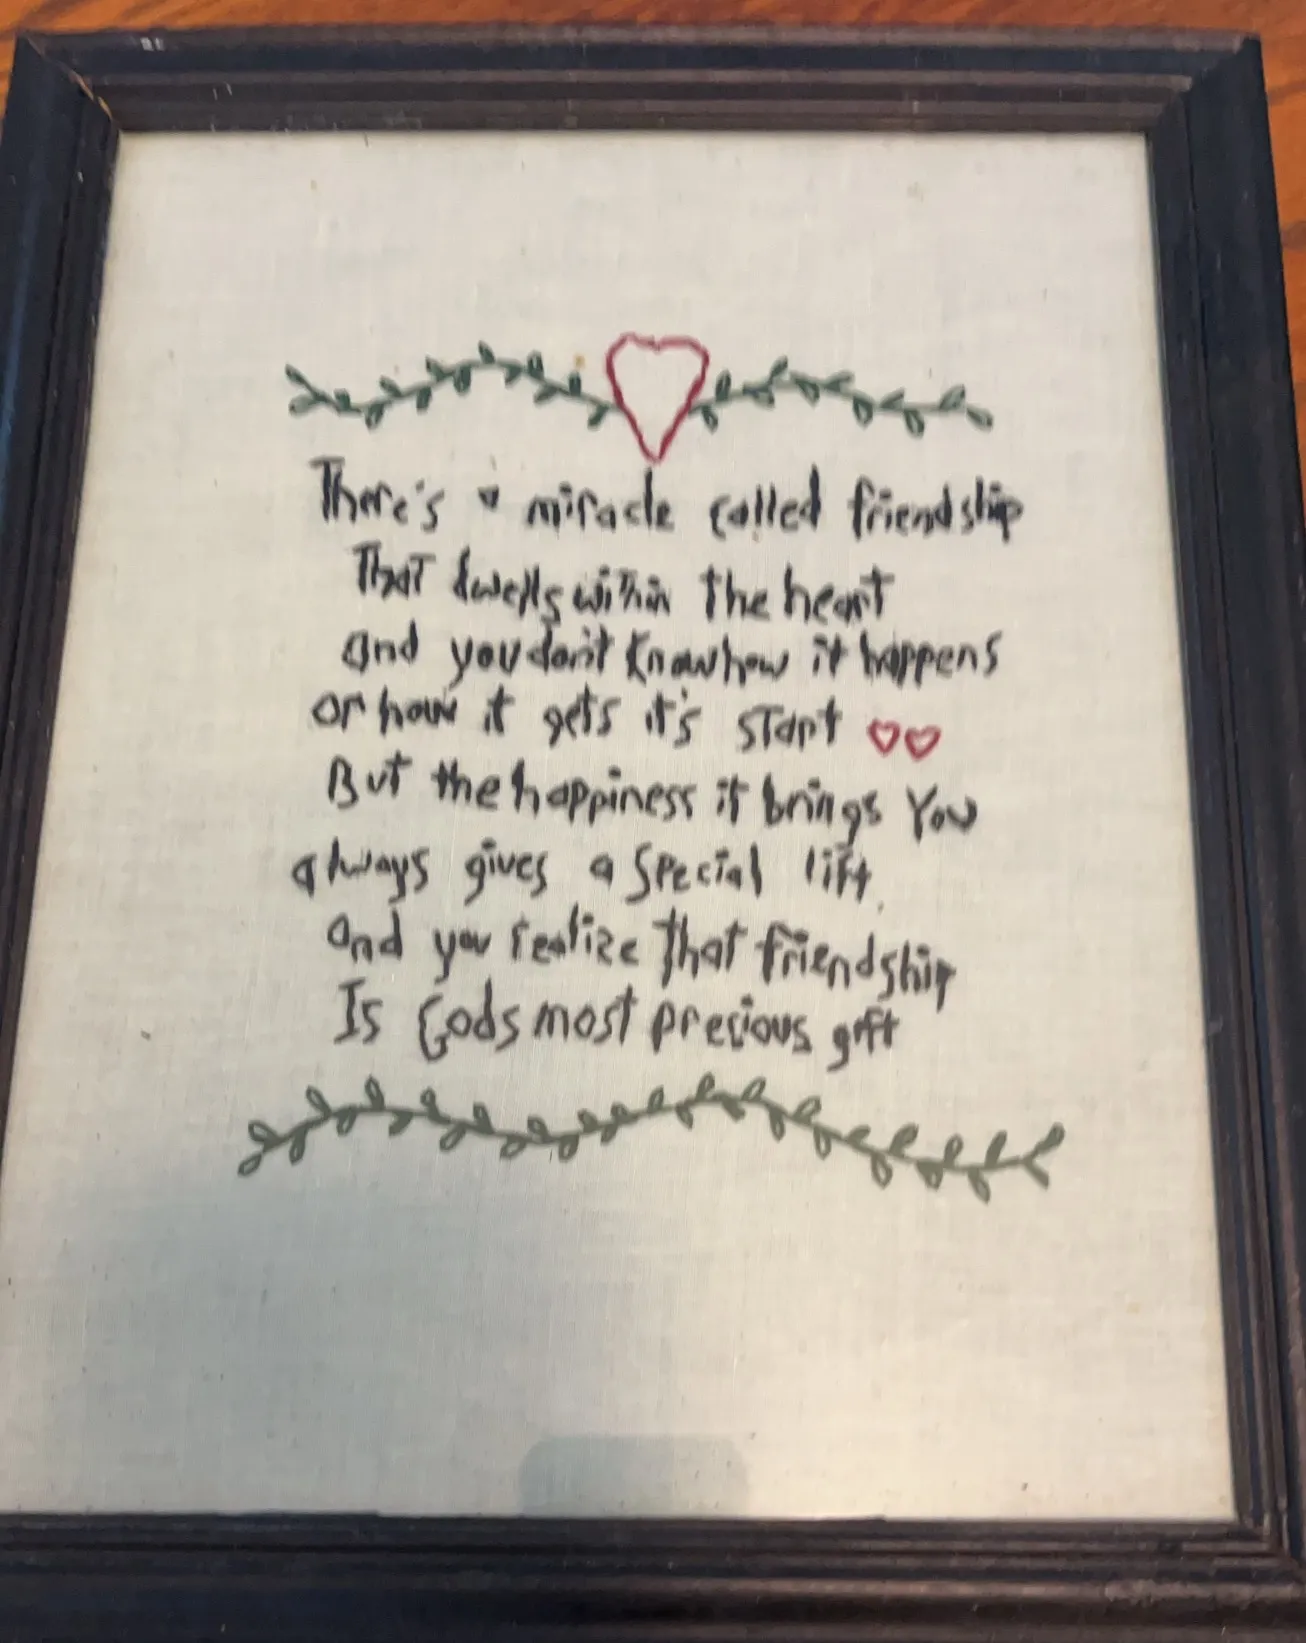 There's a miracle called friendship
That dwells within the heart
and you don't know how it happens
or how it gets it's start
But the happiness it brings You
always gives a special lift.
and you realize that friendship
Is Gods most precious gift